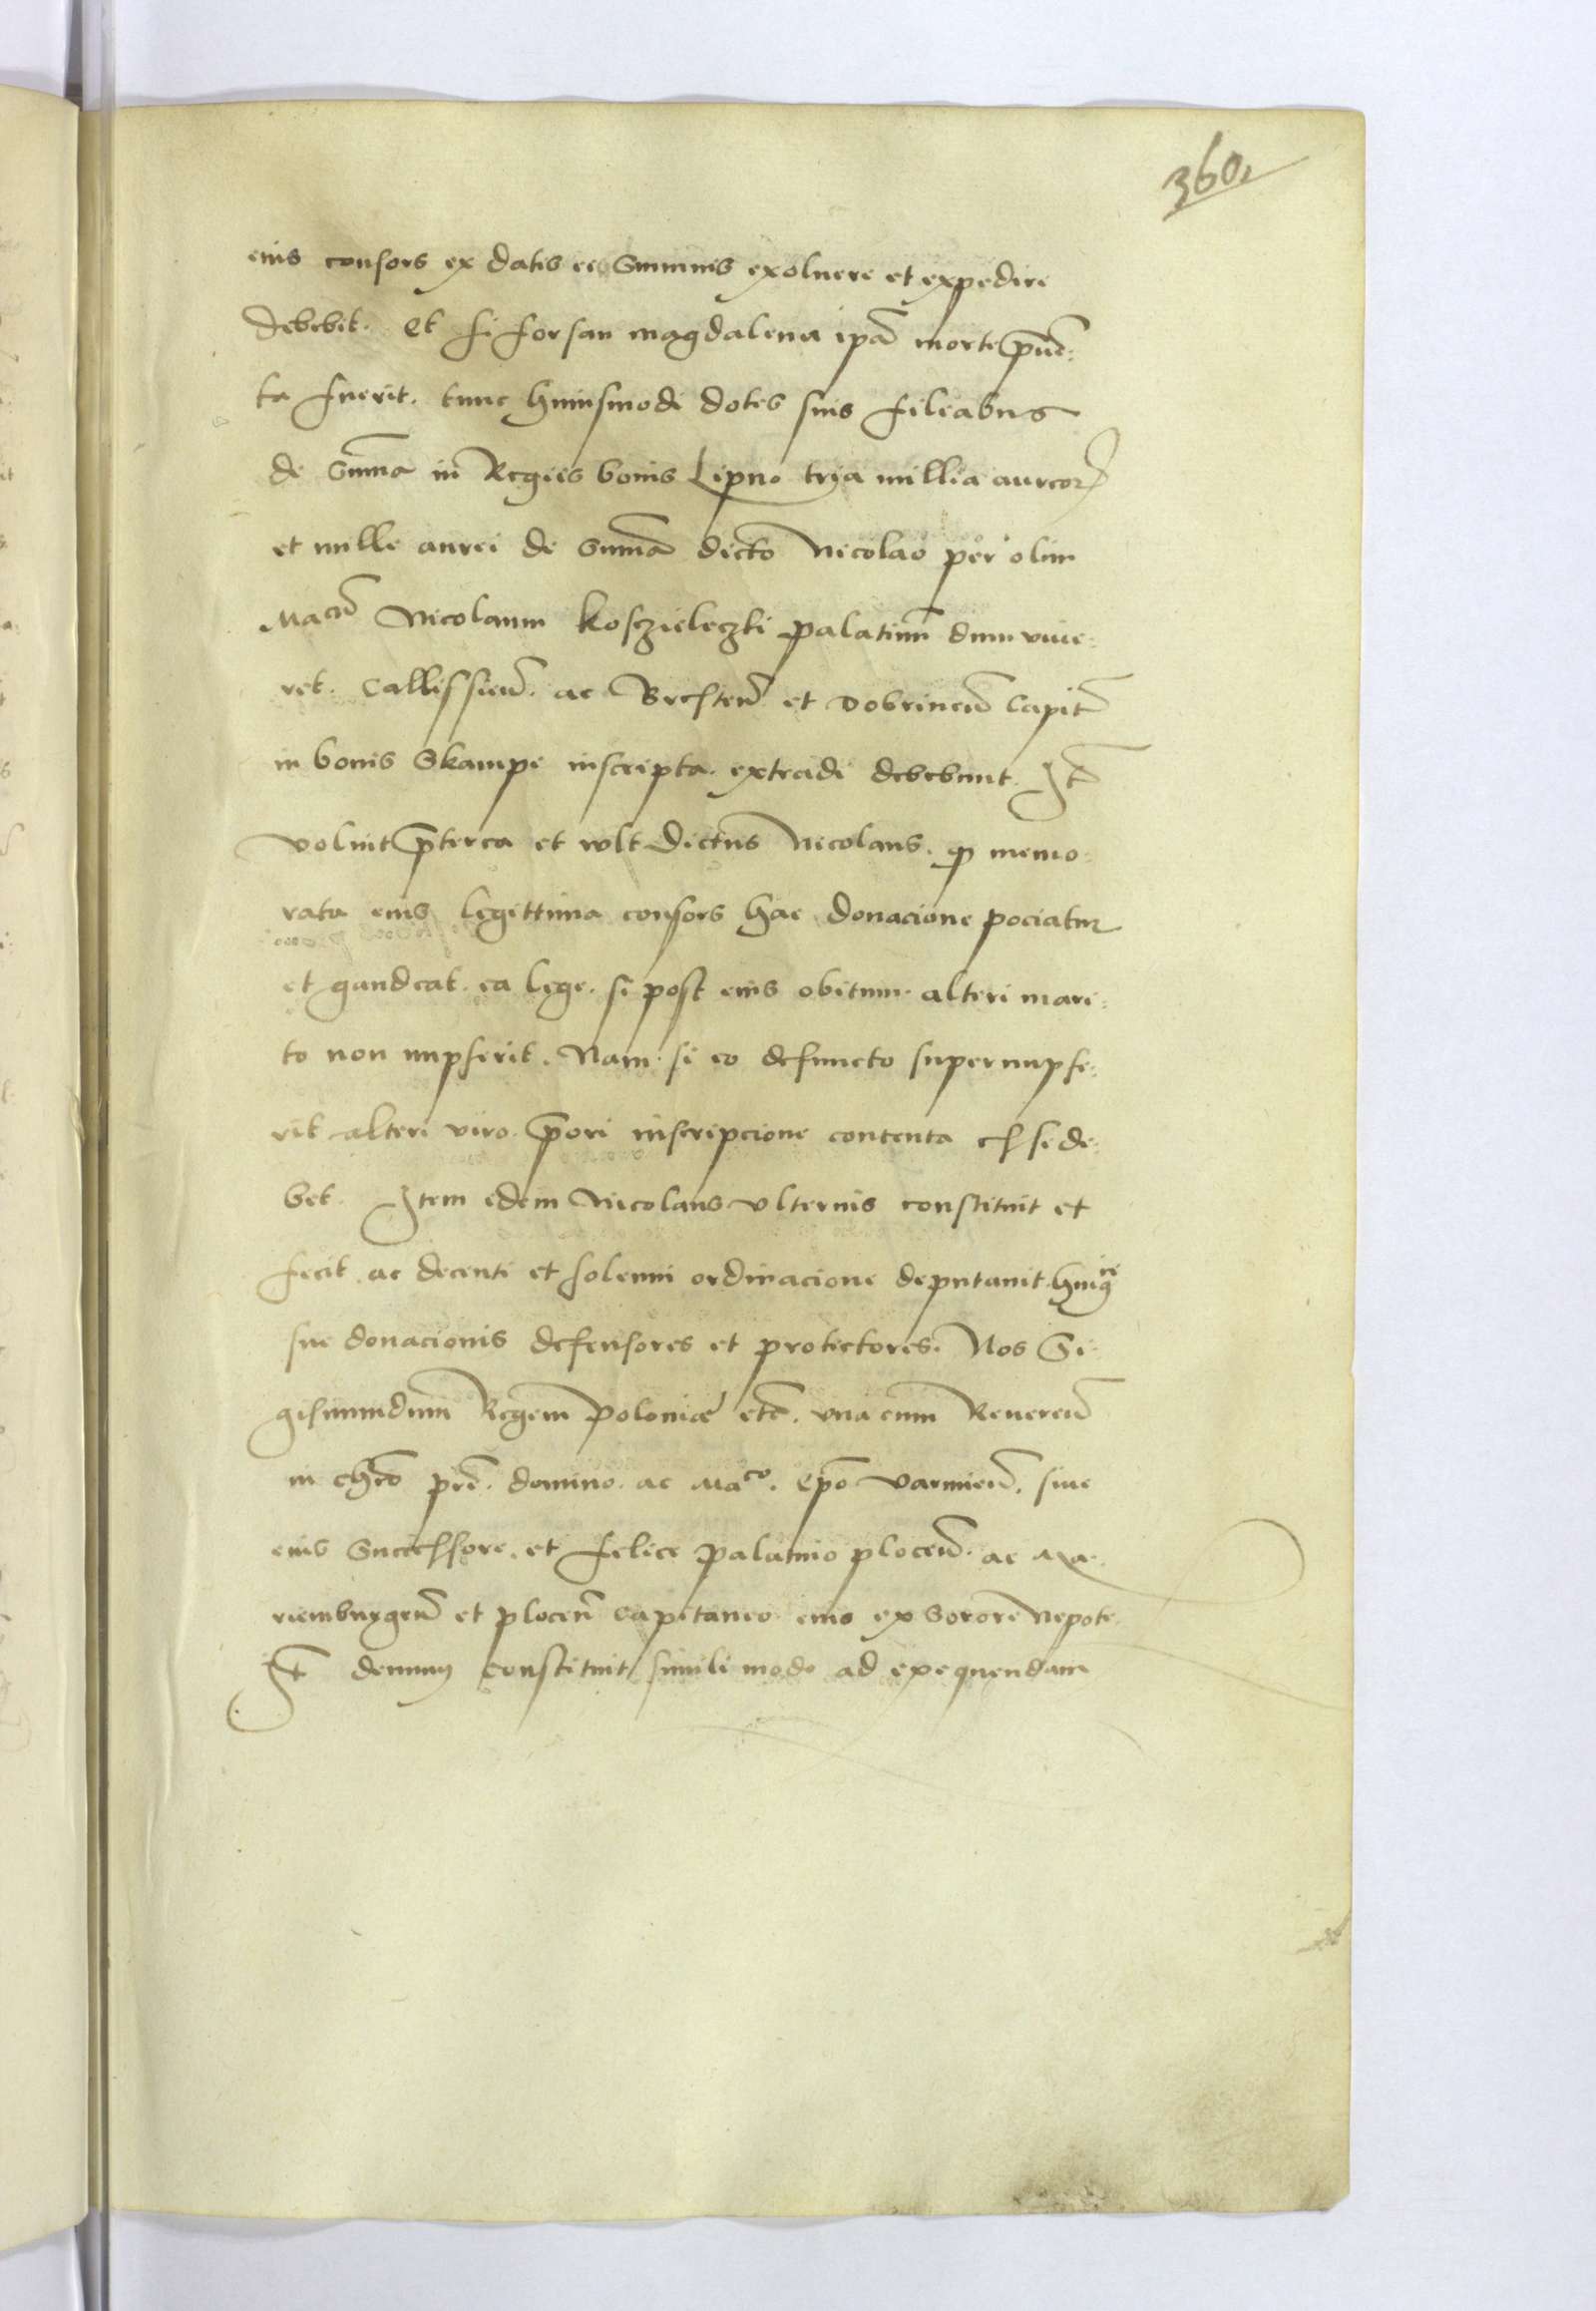 360,
eius consors ex datis ei Summis exoluere et expedire
debebit. Et si forsan magdalena ipā morte p̄uē:
ta fuerit. tunc huiusmodi dotes suis filiabus
de Sūma in Regiis bonis Lipno trja millia aureoꝝ
et mille aurei de Sum̄a dicto Nicolao per olim
Macū Nicolaum Koszieleczki palatinū dum viue:
ret. Callissieñ. ac Bresteñ et Dobrineñ Capit̄
in bonis Skampe inscripta. extradi debebunt. It̄
voluit p̄terea et vult dictus Nicolaus. ꝙ memo:
rata eius legittima consors hac donacione pociatur
et gaudeat. ea lege. si post eius obitum. alteri mari:
to non nupserit. Nam. si eo defuncto supernupse:
rit alteri viro. p̄ori inscripcione contenta esse de:
bet. Item idem Nicolaus vlterius constituit et
fecit ac decenti et solenni ordinacione deputauit. huiꝰ
sue donacionis defensores et protectores. Nos Si:
gismundum Regem Poloniæ etc̄. vna cum Reuereñ
in chro̅ pr̄e. domino. ac Maco. Ep̄o Varmieñ. siue
eius Successore. et Felice palatino ploceñ. ac Ma:
riemburgeñ et ploceñ Capitaneo. eius ex Sorore Nepote.
It̄ demum constituit simili modo ad exequendam